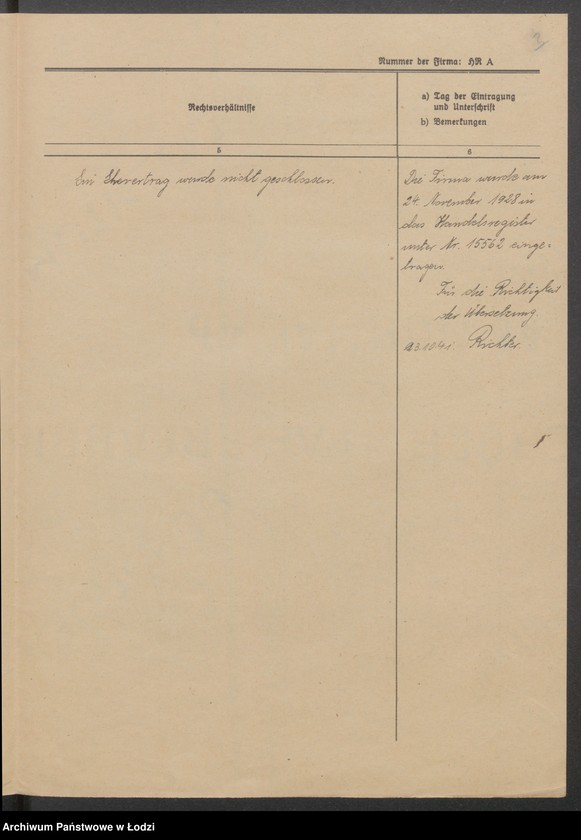 3
Nummer der Firma: HR A
Rechtsverhältnisse
a) Tag der Eintragung
und Unterschrift
b) Bemerkungen
5
6
Ein Ehevertrag wurde nicht geschlossen.
Die Firma wurde am
24. November 1928 in
das Handelsregister
unter Nr. 15562 einge-
tragen.
Für die Richtigkeit
der Übersetzung.
Richter.
Archiwum Państwowe w Łodzi